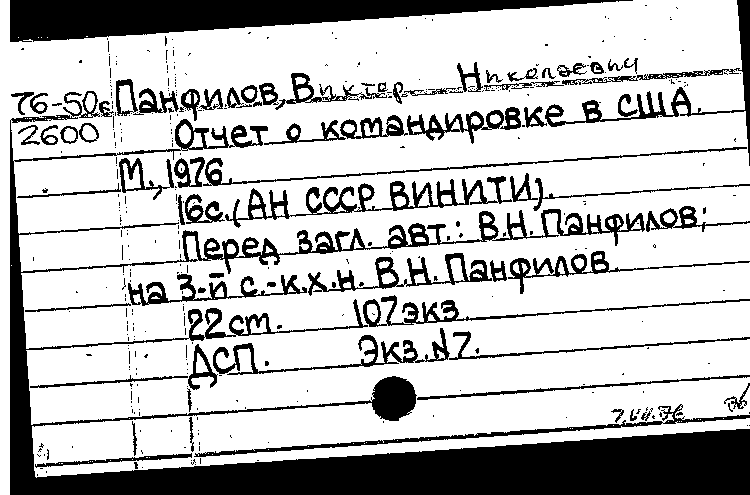 76-50с Панфилов, Виктор Николаевич
2600 Отчет о командировке в США.
М., 1976.
16с. (АН СССР. ВИНИТИ).
Перед загл. авт.: В.Н. Панфилов;
на 3-й с.-к.х.н. В.Н. Панфилов.
22 см. 107 экз.
ДСП. Экз. №7.
7.VII.76